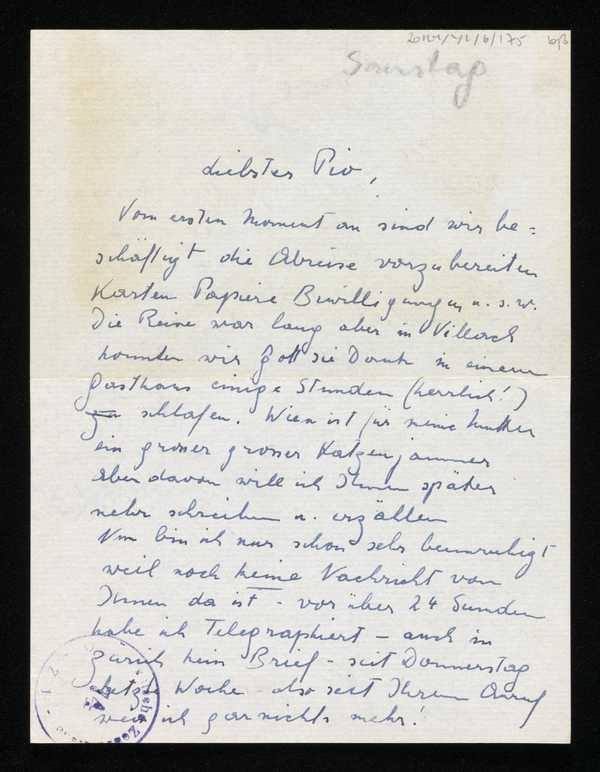 Samstag
Liebster Pio,
Vom ersten Moment an sind wir be=
schäftigt die Abreise vorzubereiten
Karten Papiere Bewilligungen u. s. w.
Die Reise war lang aber in Villach
konnten wir Gott sie Dank in einem
Gasthaus einige Stunden (herrlich!)
zu schlafen. Wien ist für meine Mutter
ein grosser grosser Katzenjammer
Aber davon will ich Ihnen später
mehr schreiben u. erzällen
Nun bin ich nur schon sehr beunruhigt
weil noch keine Nachricht von
Ihnen da ist – vor über 24 Stunden
habe ich Telegraphiert – auch in
Zürich kein Brief – seit Donnerstag
letzte Woche also seit Ihrem Anruf
weis ich gar nichts mehr!